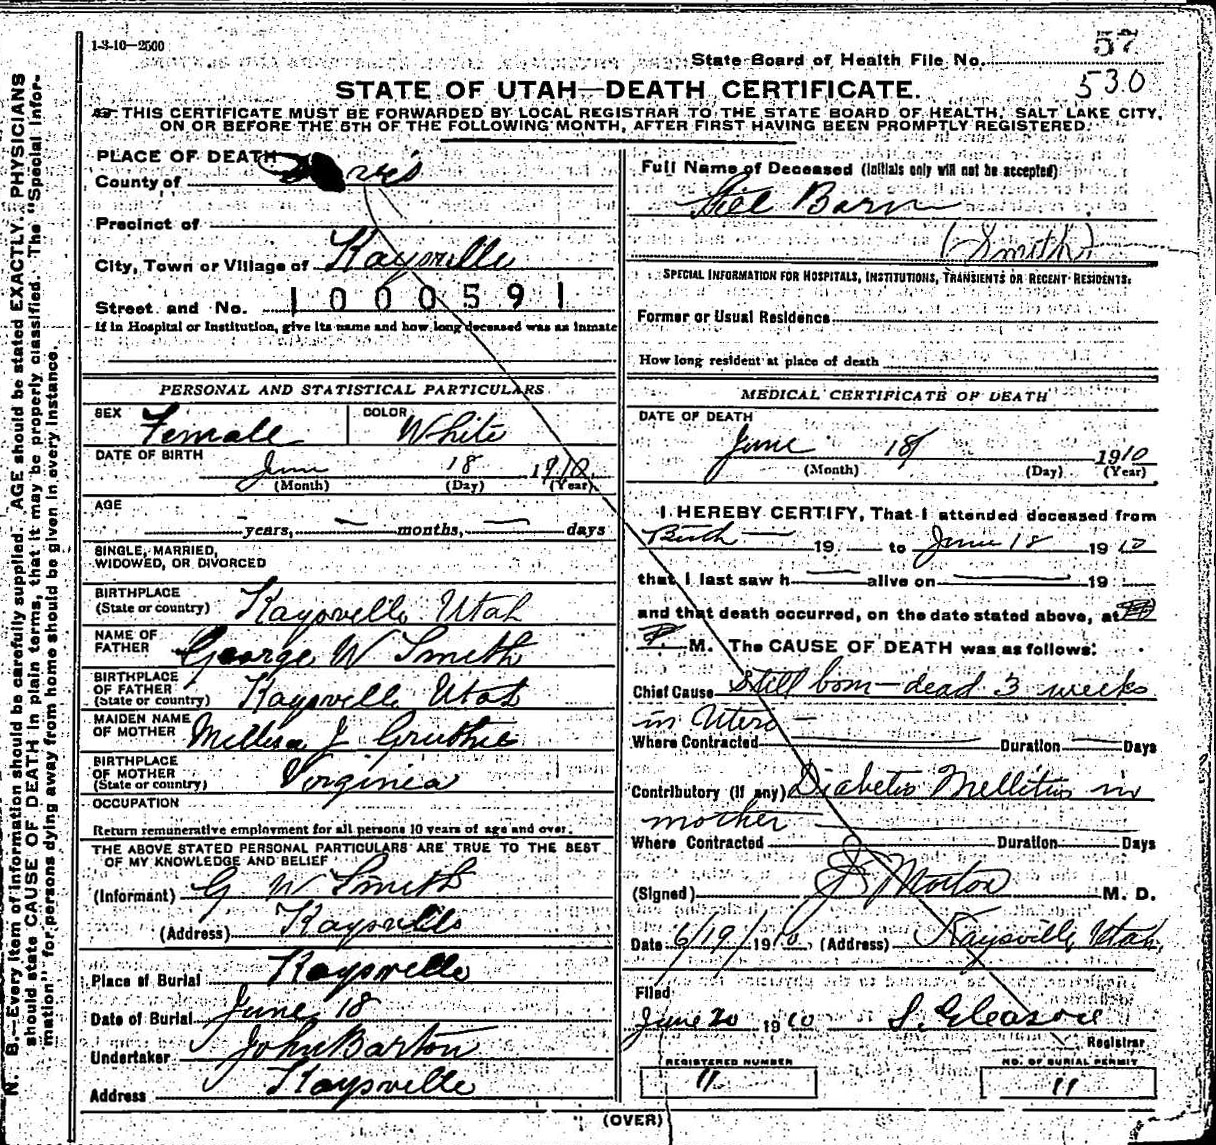 1-3-10—2500
57
State Board of Health File No.
530
STATE OF UTAH—DEATH CERTIFICATE.
THIS CERTIFICATE MUST BE FORWARDED BY LOCAL REGISTRAR TO THE STATE BOARD OF HEALTH, SALT LAKE CITY,
ON OR BEFORE THE 5TH OF THE FOLLOWING MONTH, AFTER FIRST HAVING BEEN PROMPTLY REGISTERED.
N. B.—Every item of information should be carefully supplied. AGE should be stated EXACTLY. PHYSICIANS
should state CAUSE OF DEATH in plain terms, that it may be properly classified. The "Special Infor-
mation" for persons dying away from home should be given in every instance.
PLACE OF DEATH
County of
Precinct of
City, Town or Village of Kaysville
Street and No. 1000591
If in Hospital or Institution, give its name and how long deceased was as inmate
PERSONAL AND STATISTICAL PARTICULARS
SEX Female COLOR White
DATE OF BIRTH June 18 1910
(Month) (Day) (Year)
AGE
- years, - months, - days
SINGLE, MARRIED,
WIDOWED, OR DIVORCED
BIRTHPLACE
(State or country) Kaysville Utah
NAME OF
FATHER George W Smith
BIRTHPLACE
OF FATHER
(State or country) Kaysville Utah
MAIDEN NAME
OF MOTHER Mellisa J Gruthie
BIRTHPLACE
OF MOTHER
(State or country) Virginia
OCCUPATION
Return remunerative employment for all persons 10 years of age and over.
THE ABOVE STATED PERSONAL PARTICULARS ARE TRUE TO THE BEST
OF MY KNOWLEDGE AND BELIEF
(Informant) G W Smith
(Address) Kaysville
Place of Burial Kaysville
Date of Burial June 18
Undertaker John Barton
Address Kaysville
Full Name of Deceased (Initials only will not be accepted)
Stiel Born
(Smith)
SPECIAL INFORMATION FOR HOSPITALS, INSTITUTIONS, TRANSIENTS OR RECENT RESIDENTS:
Former or Usual Residence
How long resident at place of death
MEDICAL CERTIFICATE OF DEATH
DATE OF DEATH
June 18 1910
(Month) (Day) (Year)
I HEREBY CERTIFY, That I attended deceased from
Birth — 19 to June 18 1910
that I last saw h — alive on — 19
and that death occurred, on the date stated above, at
P. M. The CAUSE OF DEATH was as follows:
Chief Cause Still born—dead 3 weeks
in Utero —
Where Contracted Duration Days
Contributory (if any) Diabetis Mellitus in
mother
Where Contracted Duration Days
(Signed) J Morton M. D.
Date 6/19/1910 (Address) Kaysville, Utah,
Filed
June 20 1910 S. Gleason
Registrar
REGISTERED NUMBER 11
NO. OF BURIAL PERMIT 11
(OVER)